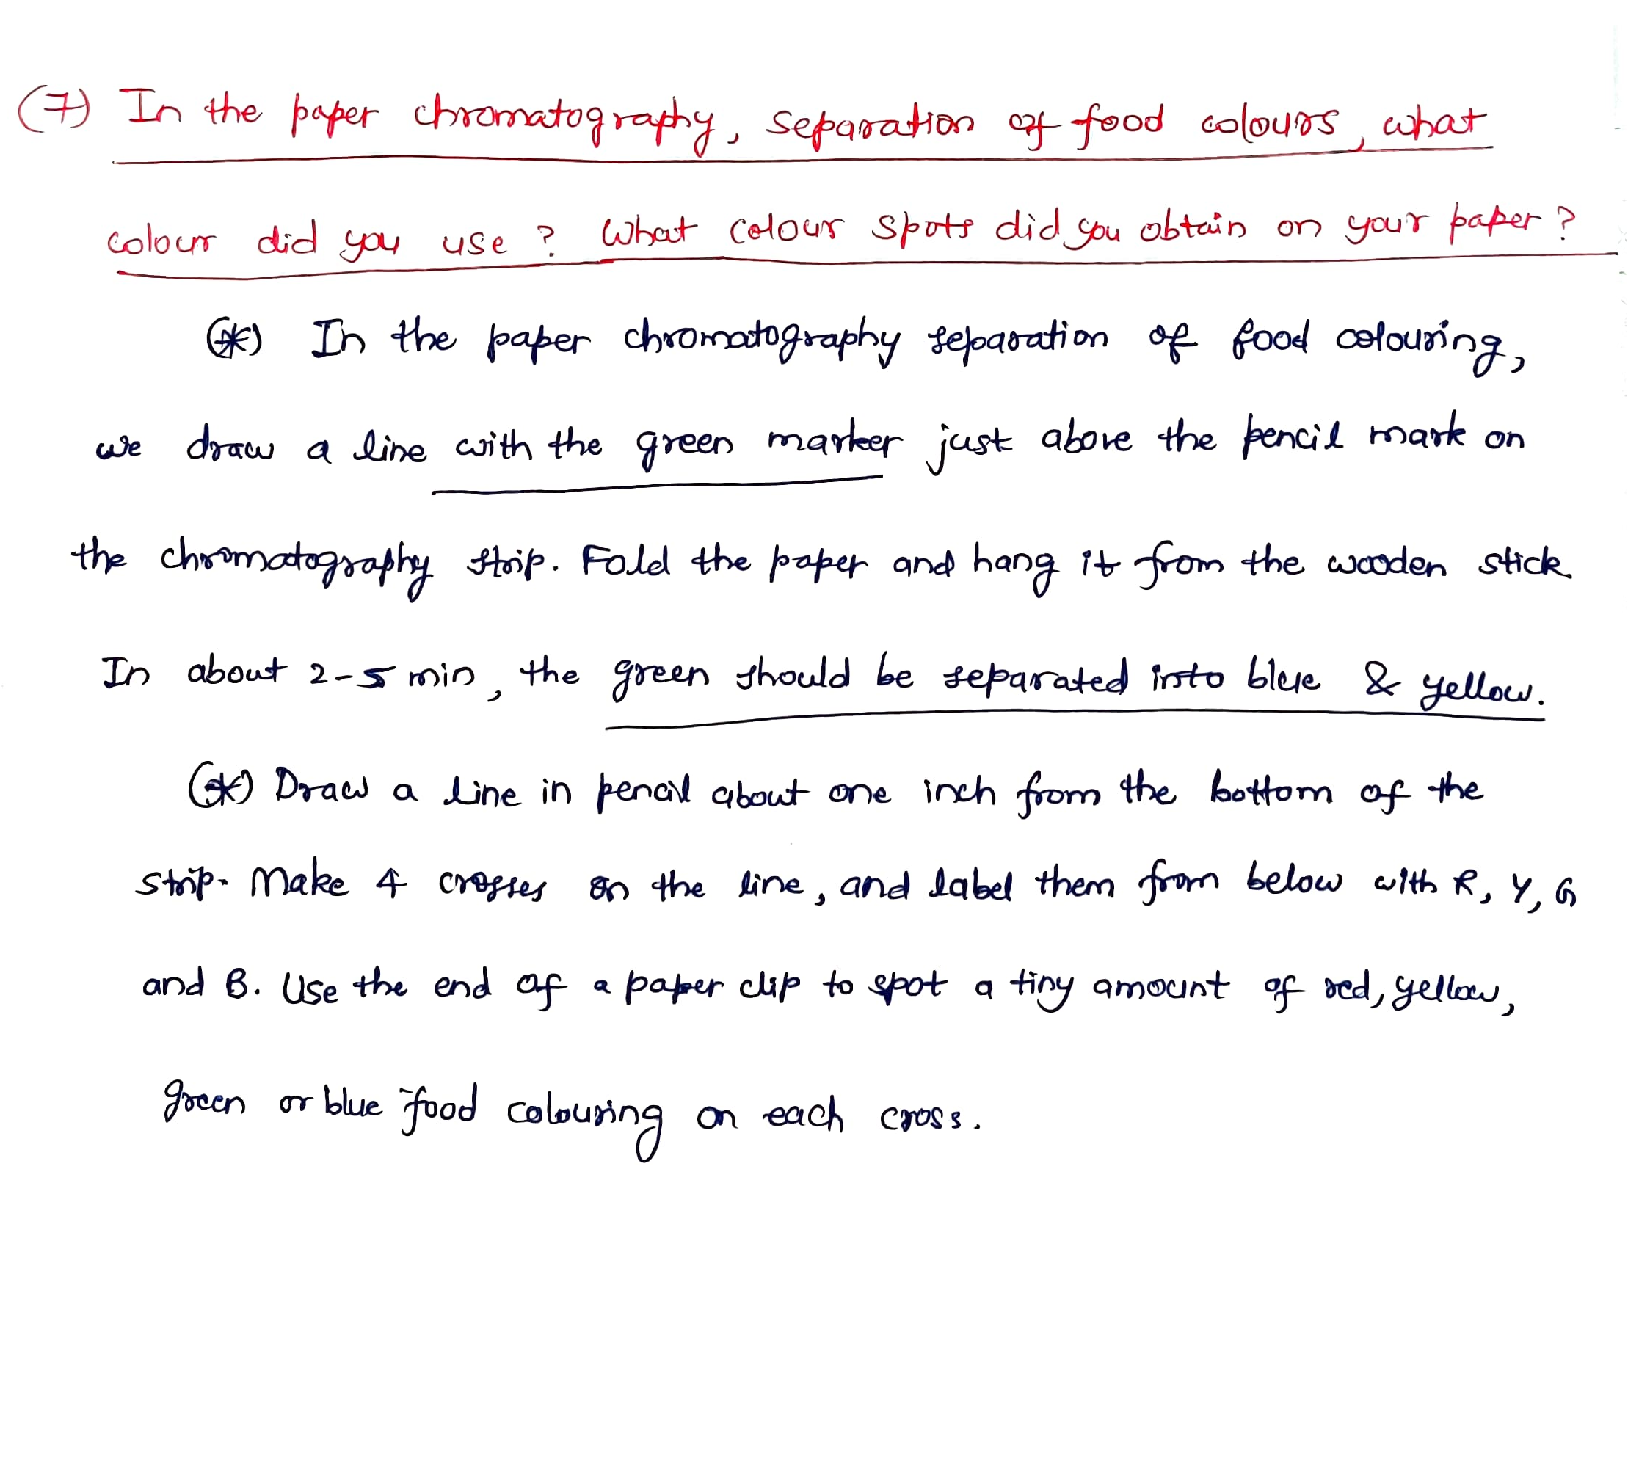 (7) In the paper chromatography, separation of food colours, what
colour did you use? What colour spots did you obtain on your paper?
(*) In the paper chromatography separation of food colouring,
we draw a line with the green marker just above the pencil mark on
the chromatography strip. Fold the paper and hang it from the wooden stick
In about 2-5 min, the green should be separated into blue & yellow.
(*) Draw a line in pencil about one inch from the bottom of the
strip. Make 4 crosses on the line, and label them from below with R, Y, G
and B. Use the end of a paper clip to spot a tiny amount of red, yellow,
green or blue food colouring on each cross.